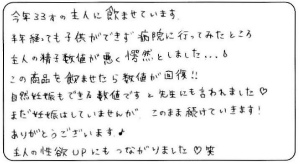 今年33才の主人に飲ませています。
半年経っても子供ができず病院に行ってみたところ
主人の精子数値が悪く愕然としました...💧
この商品を飲ませたら数値が回復!!
自然妊娠もできる数値ですと先生にも言われました♡
まだ妊娠はしていませんが、このまま続けていきます!
ありがとうございます♪
主人の性欲UPにもつながりました♡笑